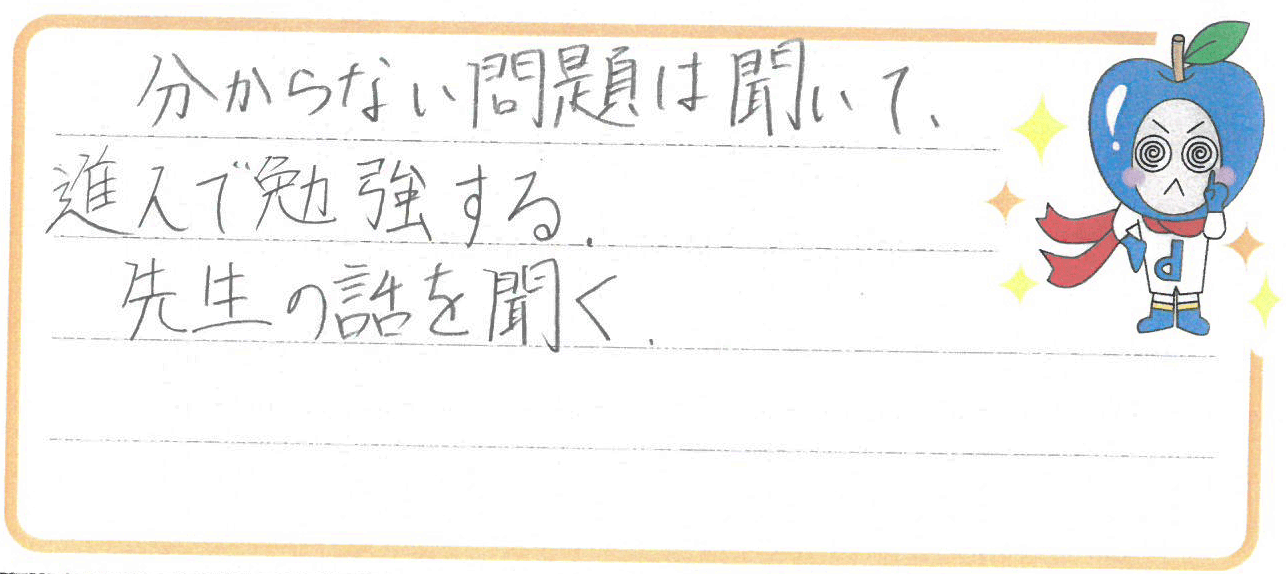 分からない問題は聞いて、
進んで勉強する.
先生の話を聞く.
P